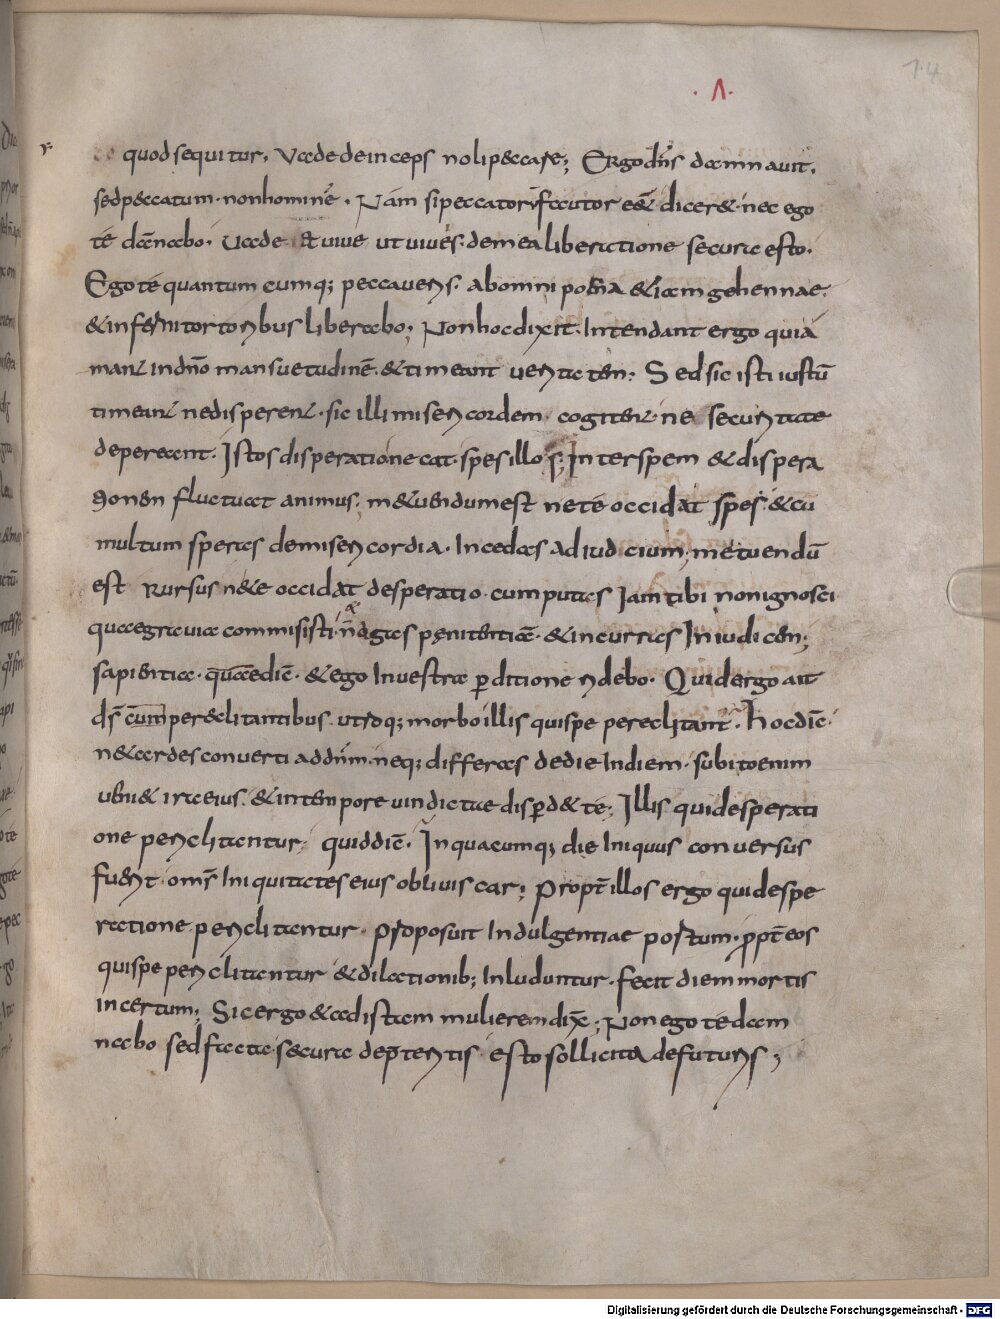 14
·Λ·
quod sequitur, Vade deinceps noli peccare; Ergo dñs damnavit,
sed peccatum · non hominẽ · Nam si peccatorũ fautor eẽt dicer& · nec ego
té dãnabo · Vade & vive ut vives · de mea liberatione secura esto ·
Ego té quantumcumq; peccaveris · ab omni poena & iam gehennae ·
& inferni tortoribus liberabo; Non hoc dixit · Intendant ergo quia
mant in dño mansuetudinẽ · & timeant veritatem; Sed sic isti iustũ
timeant ne disperent · sic illi misericordem cogitent · ne securitate
depereant · Istos disperatione cat · spes illos; Inter spem & dispera
tionen fluctuat animus; m&uendum est ne té occidat spes · & cũ
multum speras de misericordia · Incedas ad iudicium; metuendũ
est Rursus ne te occidat desperatio · cum putas Iam tibi non ignosci
quae gravia commisisti · nõ agas penitentiã · & incurras In iudicen;
sapientiae · quae dic̃ · & ego In vestra pditione ridebo · Quid ergo ait
dš cum per&clitantibus · utroq; morbo illis qui spe pereclitant · Hoc dic̃ ·
ne tardes converti ad dñm · neq; differas de die In diem · subito enim
veni& ira eius · & in tenpore vindictae disp̱d& té; Illis qui desperati
one periclitantur · quid dic̃ · In quacumq; die Iniquus conversus
fuerit · om̃s Iniquitates eius obliviscar; Propt̃ illos ergo qui despe
ratione periclitantur · proposuit Indulgentiae portum · propt̃ eos
qui spe periclitantur & dilationib; Inluduntur · fecit diem mortis
incertum; Sic ergo & ad istam mulierem dix̃; Non ego té dam
nabo sed facta secura de p̱teritis esto sollicita de futuris;
Digitalisierung gefördert durch die Deutsche Forschungsgemeinschaft - DFG